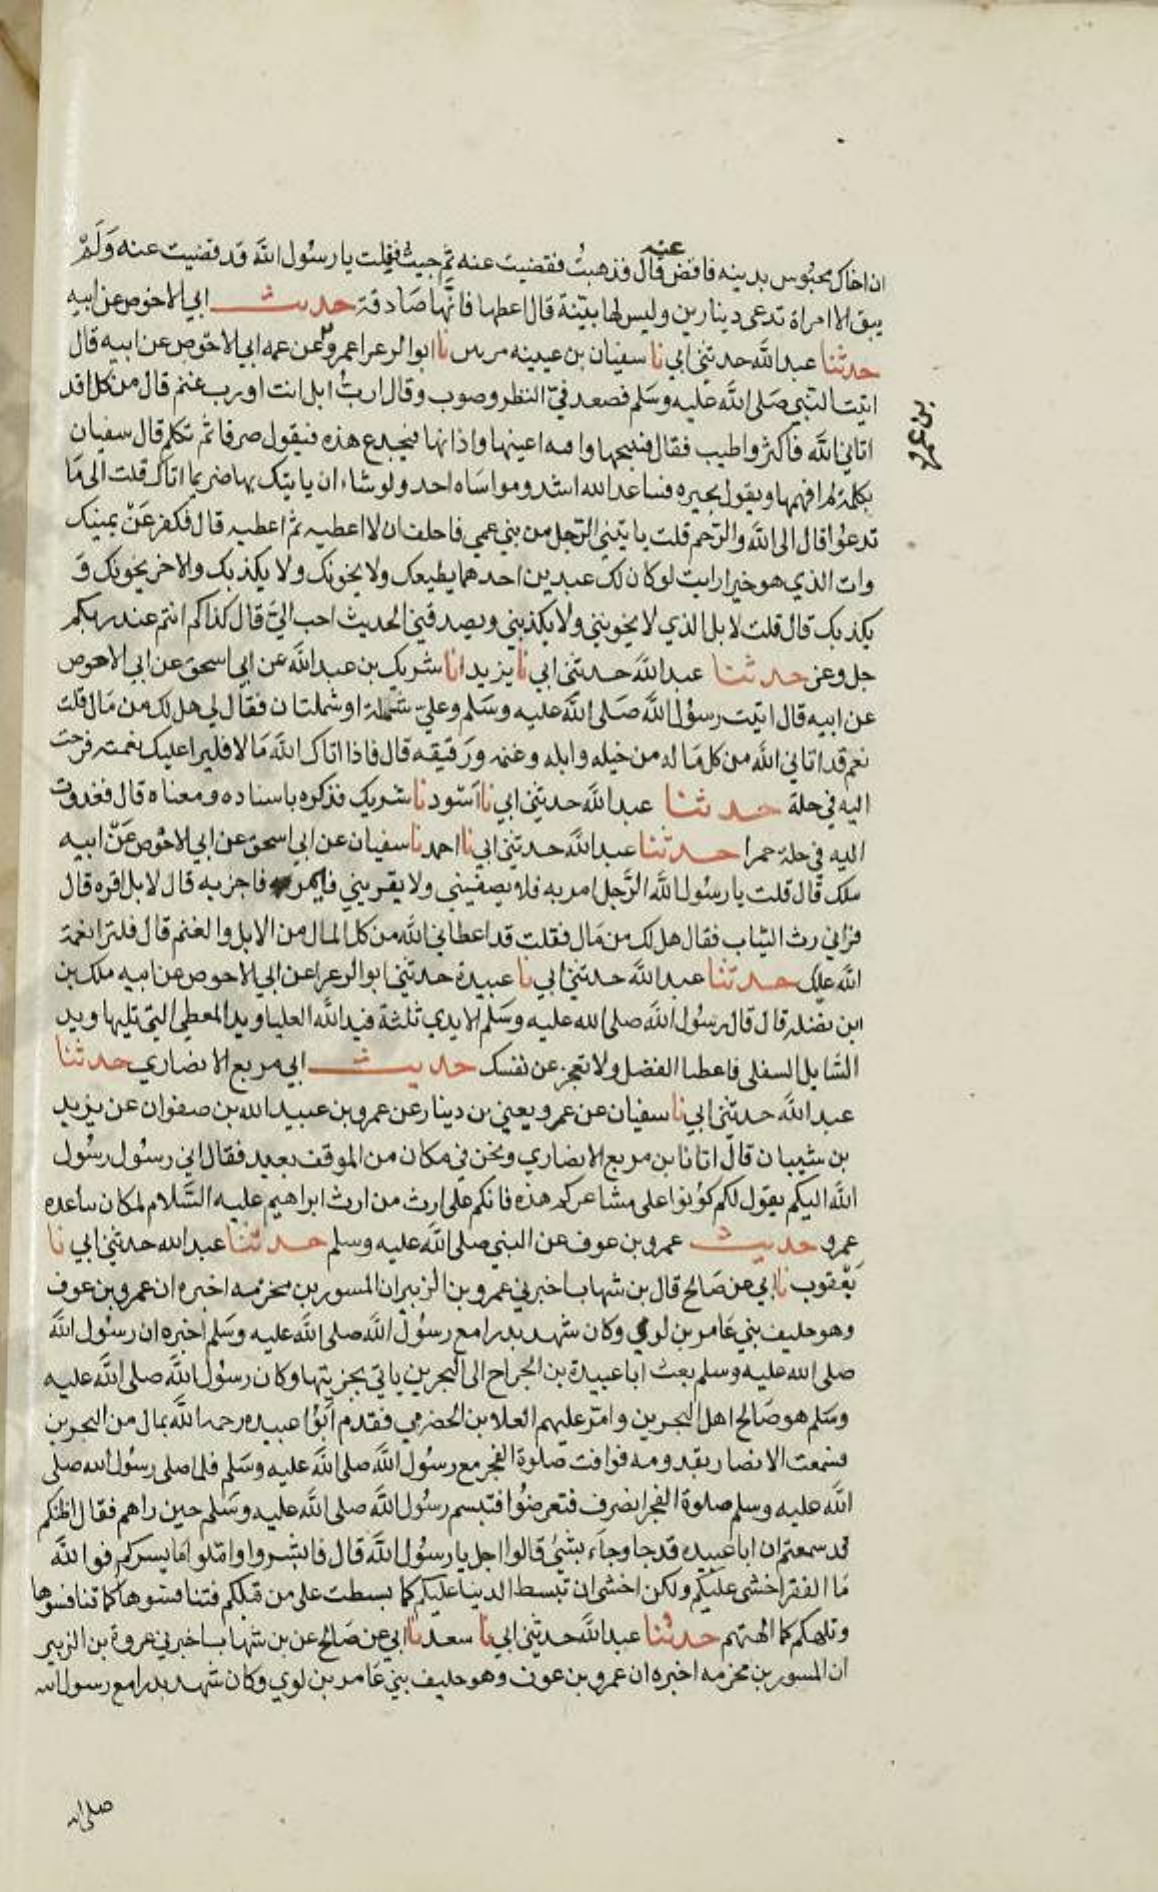 ان اخاك محبوس بدينه فاقض عنه قال فذهبت فقضيت عنه ثم جيت فقلت يا رسول الله قد قضيت عنه ولم
يبق الا امراة تدعى دينارين وليس لها بينة قال اعطها فانها صادقة حديث ابي الاحوص عن ابيه
حدثنا عبد الله حدثني ابي نا سفيان بن عيينه مرتين نا ابو الزعرا عمرو عن عمه ابي الاحوص عن ابيه قال
بن عمرو
اتيت النبي صلى الله عليه وسلم فصعد في النظر وصوب وقال ارب ابل انت او رب غنم قال من كل قد
اتاني الله فاكثر واطيب فقال فتنتجها وافيه اعينها واذانها فتجدع هذه فتقول صرفا ثم تكلم قال سفيان
بكلمة لم افهمها وتقول بحيره فساعد الله اشد وموساه احد ولو شاء ان ياتيك بها صرما اتاك قلت الى ما
تدعوا قال الى الله والرحم قلت ياتيني الرجل من بني عمي فاحلف ان لا اعطيه ثم اعطيه قال فكفر عن يمينك
وات الذي هو خير ارايت لو كان لك عبدين احدهما يطيعك ولا يخونك ولا يكذبك والاخر يخونك و
يكذبك قال قلت لا بل الذي لا يخونني ولا يكذبني ويصدقني الحديث احب الي قال كذاكم انتم عند ربكم
جل وعز حدثنا عبد الله حدثني ابي نا يزيد انا شريك بن عبد الله عن ابي اسحق عن ابي الاحوص
عن ابيه قال اتيت رسول الله صلى الله عليه وسلم وعلي شملة او شملتان فقال لي هل لك من مال قلت
نعم قد اتاني الله من كل ماله من خيله وابله وغنمه ورقيقه قال فاذا اتاك الله مالا فلير اعليك نعمته فرحت
اليه في حلة حدثنا عبد الله حدثني ابي نا اسود نا شريك فذكره باسناده ومعناه قال فغدوت
اليه في حلة حمرا حدثنا عبد الله حدثني ابي نا احمد نا سفيان عن ابي اسحق عن ابي الاحوص عن ابيه
ملك قال قلت يا رسول الله الرجل امر به فلا يضيفني ولا يقريني فيمر به فاجزيه قال لا بل اقره قال
فراني رث الثياب فقال هل لك من مال فقلت قد اعطاني الله من كل المال من الابل والغنم قال فلترا نعمة
الله عليك حدثنا عبد الله حدثني ابي نا عبيدة حدثني ابو الزعرا عن ابي الاحوص عن ابيه ملك بن
ابن نضله قال قال رسول الله صلى الله عليه وسلم الايدي ثلثة فيد الله العليا ويد المعطي التي تليها ويد
السايل السفلى فاعطا الفضل ولا تعجز عن نفسك حديث ابي مربع الانصاري حدثنا
عبد الله حدثني ابي نا سفيان عن عمرو يعني بن دينار عن عمرو بن عبيد الله بن صفوان عن يزيد
بن شيبان قال اتانا بن مربع الانصاري ونحن في مكان من الموقف بعيد فقال اني رسول رسول
الله اليكم يقول لكم كونوا على مشاعركم هذه فانكم على ارث من ارث ابراهيم عليه السلام لمكان ساعده
عمرو حديث عمرو بن عوف عن النبي صلى الله عليه وسلم حدثنا عبد الله حدثني ابي نا
يعقوب نا ابي عن صالح قال بن شهاب اخبرني عمرو بن الزبير ان المسور بن مخرمه اخبره ان عمرو بن عوف
وهو حليف بني عامر بن لوي وكان شهد بدرا مع رسول الله صلى الله عليه وسلم اخبره ان رسول الله
صلى الله عليه وسلم بعث ابا عبيدة بن الجراح الى البحرين ياتي بجزيتها وكان رسول الله صلى الله عليه
وسلم هو صالح اهل البحرين وامر عليهم العلا بن الحضرمي فقدم ابوا عبيده رحمه الله بمال من البحرين
فسمعت الانصار بقدومه فوافت صلوة الفجر مع رسول الله صلى الله عليه وسلم فلما صلى رسول الله صلى
الله عليه وسلم صلوة الفجر انصرف فتعرضوا فتبسم رسول الله صلى الله عليه وسلم حين راهم فقال اظنكم
قد سمعتم ان ابا عبيده قد جا وجاء بشئ قالوا اجل يا رسول الله قال فابشروا واملوا ما يسركم فوالله
ما الفقر اخشى عليكم ولكن اخشى ان تبسط الدنيا عليكم كما بسطت على من قبلكم فتنافسوها كما تنافسوها
وتلهكم كما الهتهم حدثنا عبد الله حدثني ابي نا سعد نا ابي عن صالح عن بن شهاب اخبرني عروة بن الزبير
ان المسور بن مخرمه اخبره ان عمرو بن عوف وهو حليف بني عامر بن لوي وكان شهد بدرا مع رسول الله
صلى الله